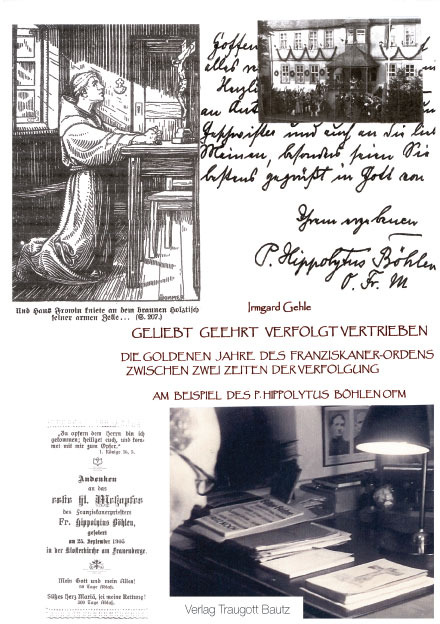 Und Hans Frowin kniete an dem braunen Holztisch
seiner armen Zelle... (S. 207.)
alles
an
Geschwister und auch an die lieben
Meinen, besonders seien Sie
bestens gegrüßt in Gott von
Ihrem ergebenen
P. Hippolytus Böhlen
O. Fr. M
Irmgard Gehle
GELIEBT GEEHRT VERFOLGT VERTRIEBEN
DIE GOLDENEN JAHRE DES FRANZISKANER-ORDENS
ZWISCHEN ZWEI ZEITEN DER VERFOLGUNG
AM BEISPIEL DES P. HIPPOLYTUS BÖHLEN OFM
„Zu opfern dem Herrn bin ich
gekommen; heiliget euch, und kom-
met mit mir zum Opfer."
1. Könige 16, 5.
Andenken
an das
erste hl. Meßopfer
des Franziskanerpriesters
Fr. Hippolytus Böhlen,
gefeiert
am 25. September 1905
in der Klosterkirche am Frauenberge.
Mein Gott und mein Alles!
50 Tage Ablaß.
Süßes Herz Mariä, sei meine Rettung!
300 Tage Ablaß.
Verlag Traugott Bautz